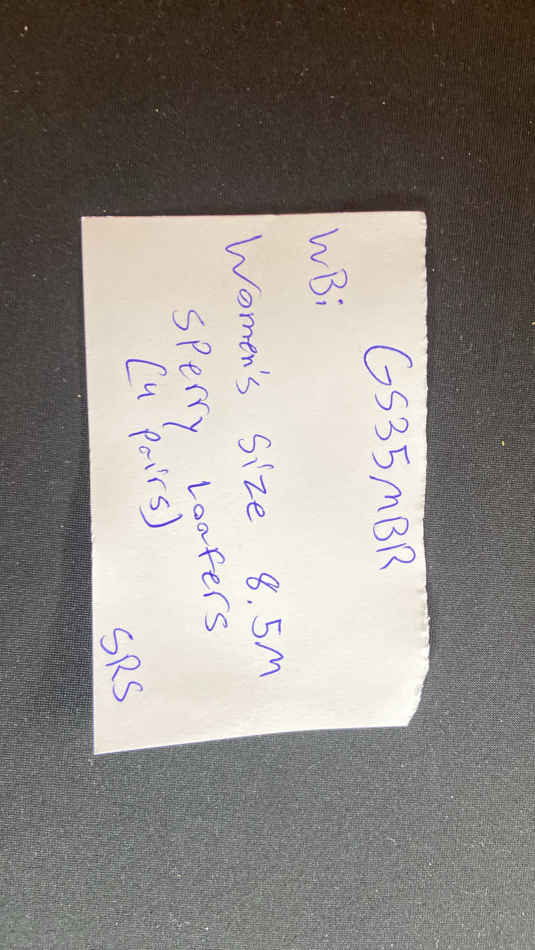 GS35MBR
WB:
Women's Size 8.5M
Sperry Loafers
(4 pairs)
SRS